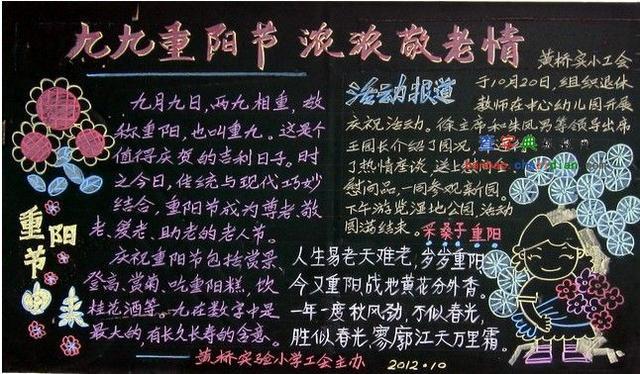 九九重阳节 浓浓敬老情
重阳
节
由来
九月九日，两九相重，故
称重阳，也叫重九。这是个
值得庆贺的吉利日子。时
之今日，传统与现代巧妙
结合，重阳节成为尊老、敬
老、爱老、助老的老人节。
庆祝重阳节包括赏景、
登高、赏菊、吃重阳糕，饮
桂花酒等。九在数字中是
最大的，有长久长寿的含意。
活动报道
黄桥实小工会
于10月20日，组织退休
教师在中心幼儿园开展
庆祝活动。徐主席和 等领导出席
王园长介绍了园况，
了热情座谈，送上
慰问品一同参观新园。
下午游览湿地公园，活动
圆满结束。
采桑子 重阳
人生易老天难老，岁岁重阳
今又重阳战地黄花分外香。
一年一度秋风劲，不似春光，
胜似春光，寥廓江天万里霜。
黄桥实验小学工会主办 2012.10